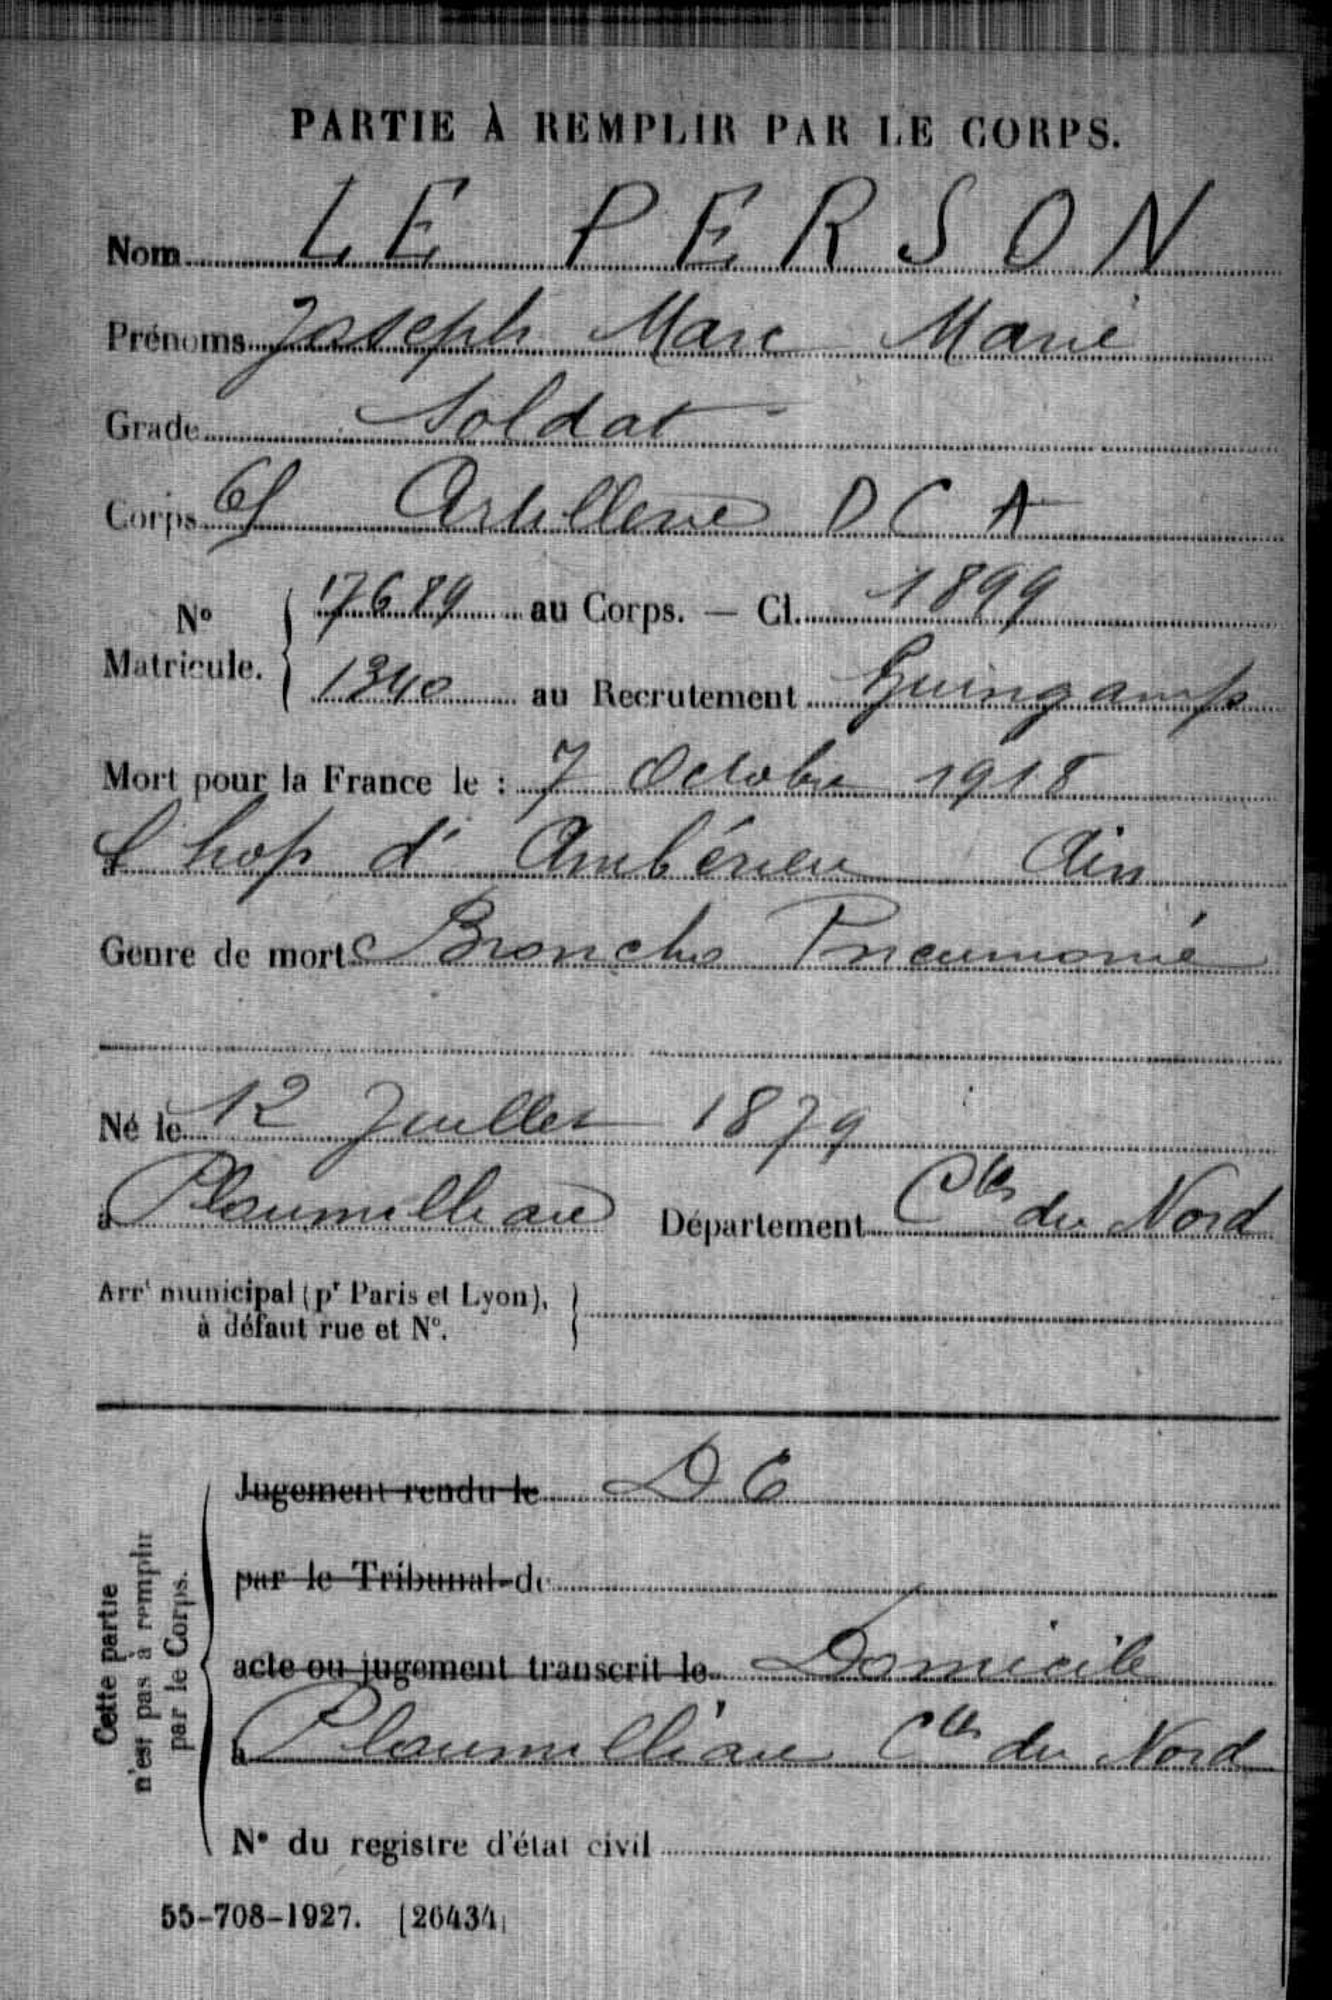 PARTIE À REMPLIR PAR LE CORPS.
Nom LE PERSON
Prénoms Joseph Marc Marie
Grade Soldat
Corps Artillerie D C A
N° Matricule. 17689 au Corps. — Cl. 1899
1340 au Recrutement Guingamp
Mort pour la France le : 7 Octobre 1918
à hop d' Ambérieu Ain
Genre de mort Broncho Pneumonie
Né le 12 Juillet 1879
à Ploumilliau Département Ctes du Nord
Arrt municipal (pr Paris et Lyon),
à défaut rue et N°.
Cette partie
n'est pas à remplir
par le Corps.
Jugement rendu le D C
par le Tribunal de
acte ou jugement transcrit le Domicile
à Ploumilliau Ctes du Nord
N° du registre d'état civil
55-708-1927. [26434]